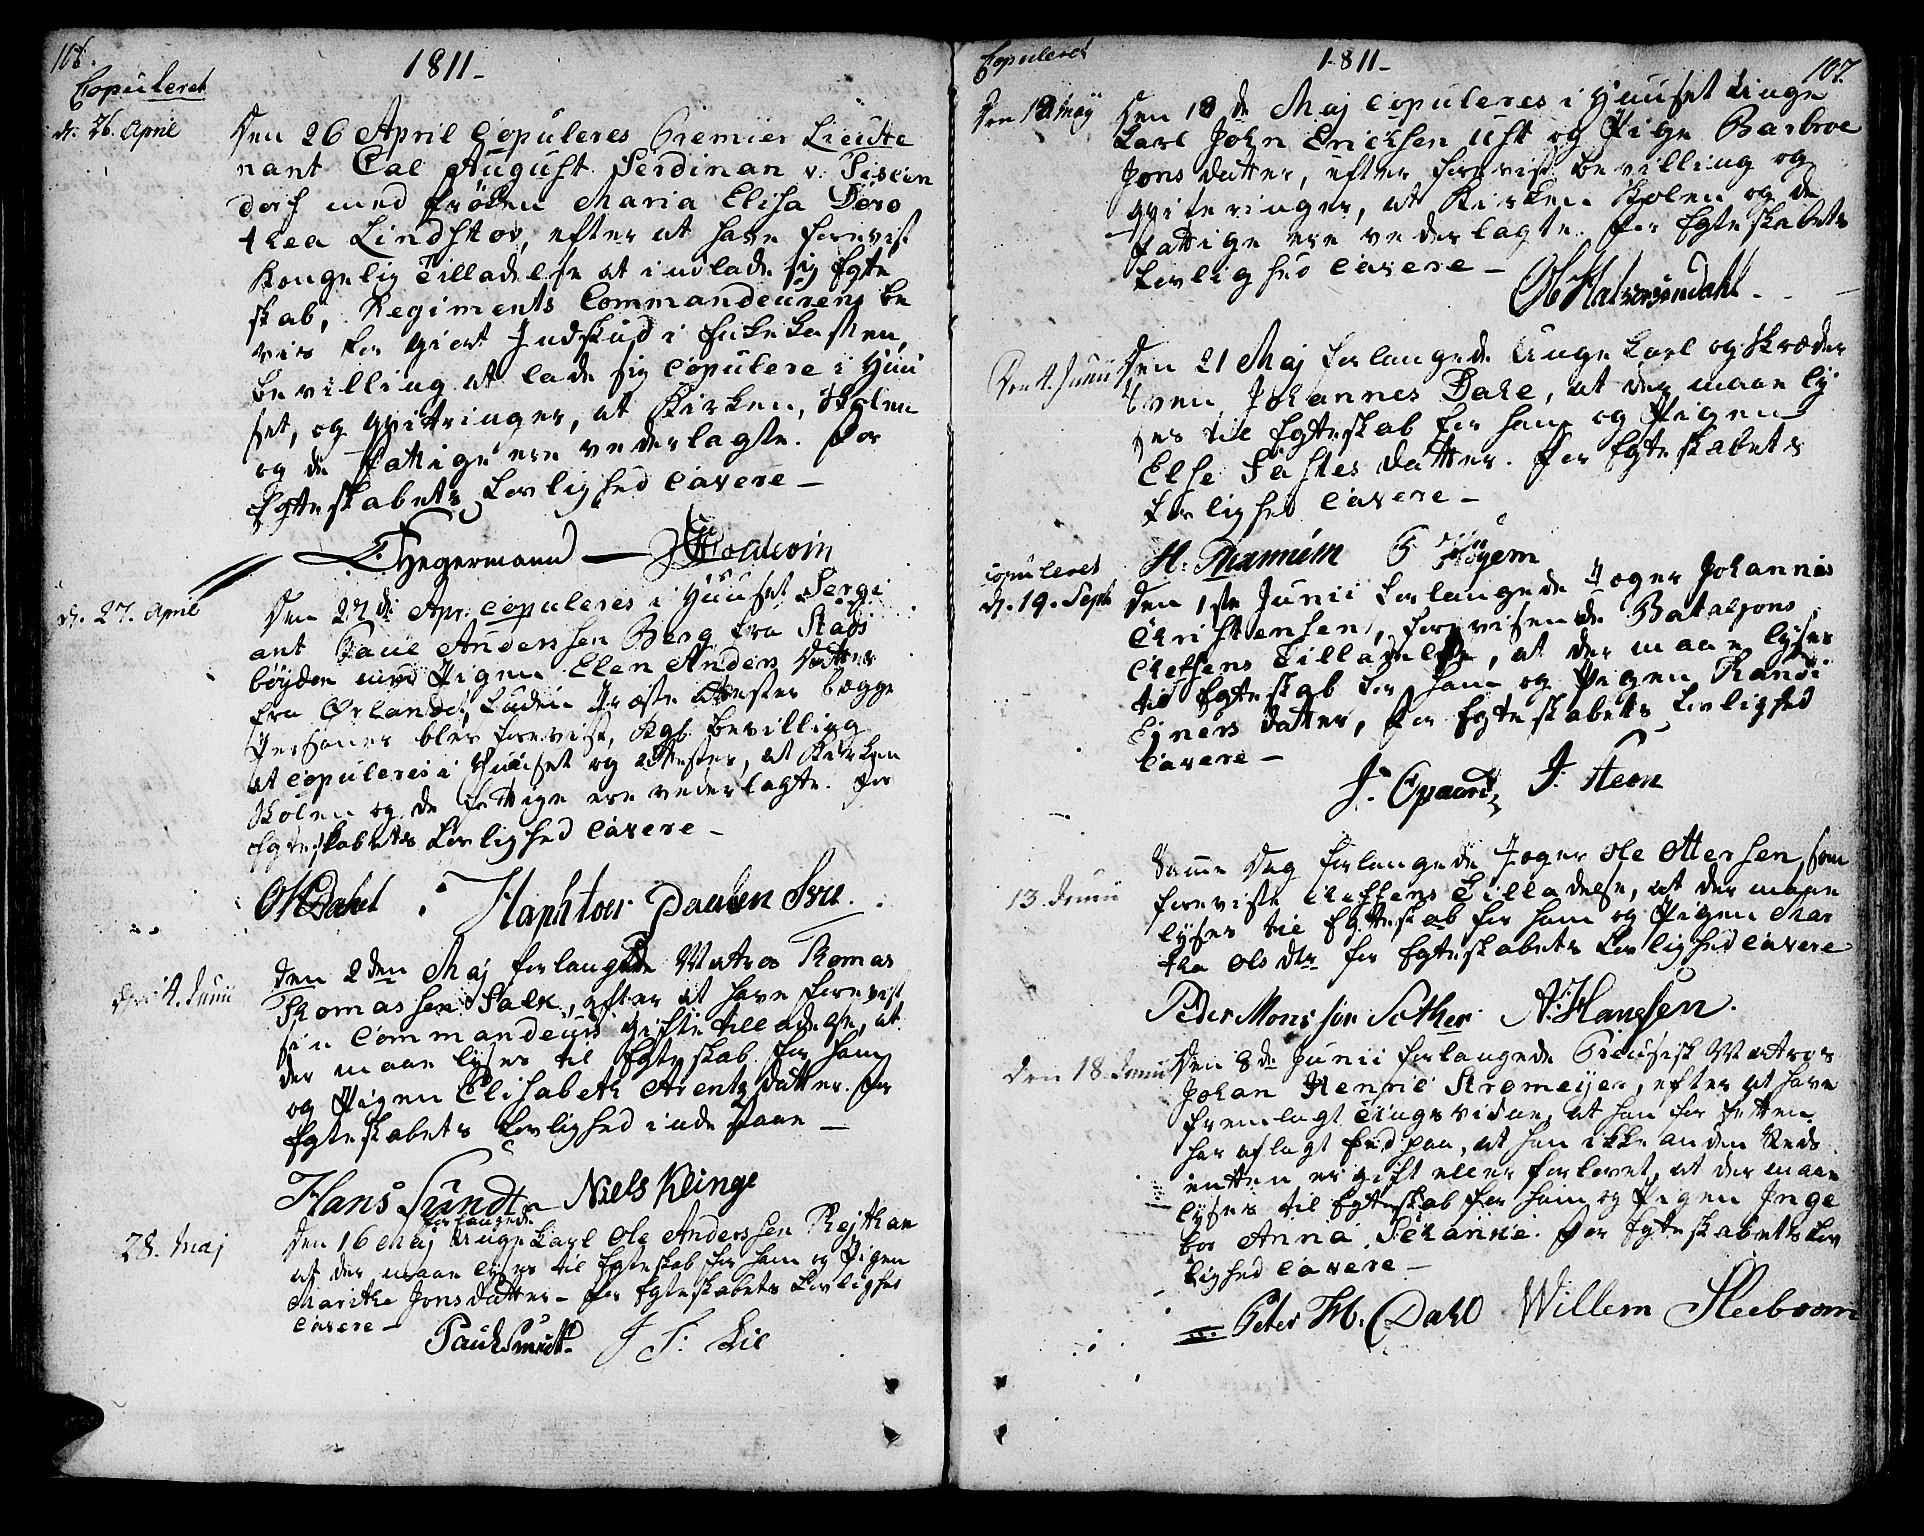 106.
1811_
Copuleret
d. 26. April
Den 26 April Copuleres Premier Lieute
nant Cal August Ferdinan v. Tiscen
dorf med frøken Maria Elisa Doro
thea Lindstov, efter at have forevist
Kongelig Tilladelse at indlade sig Egte
skab, Regiments Commandeurens be
vis for giort Indskud i Enkekassen,
bevilling at lade sig copulere i Huu
set, og qvitringer, at Kirken, Skolen
og de fattige ere vederlagte. For
Egteskabets Lovlighed cavere _
Hegermann Coldevin
d. 27. April
Den 27de Apr. copuleres i Huuset Sergi
ant Paul Anderssen Berg fra Stads
bøyden med Pigen Elen Anders Datter
fra Ørlandet, Luden Præste Attester begge
Personer blev forevist, Kgl. bevilling
at copuleres i Huuset og Attester, at Kirken
Skolen og de fattige ere vederlagte. For
Egteskabets Lovlighed cavere _
OHDahl Haphtoer Paulsen
Den 4. Junii
Den 2den Maj forlangede Matros Thomas
Thomassen Falk, efter at have forevist
sin Commandeurs Giftetilladelse, at
der maae lyses til Egteskab for ham
og Pigen Elisabeth Arentz Datter. For
Egteskabets Lovlighed indestaae _
Hans Sundt Niels Klinge
28. Maj
forlangede
Den 16 Maj Unge Karl Ole Anderssen Rejthan
at der maae lyses til Egteskab for ham og Pigen
Marithe Jons Datter _ For Egteskabets Lovlighed
cavere _
Paul Smidt J F. Lie
Copuleret
1811_
107.
Den 18 Maÿ
Den 18de Maj copuleres i Huuset Unge
Karl John Ericksen Ust og Pige Barbroe
Jons Datter, efter forevist bevilling og
qviteringer, at Kirken Skolen og de
fattige ere vederlagte. For Egteskabets
Lovlighed cavere _
Ol Halvorsendahl
Den 4. Junii
Den 21 Maj forlangede Unge Karl og Skræder
Sven Johannes Dahl, at der maae ly
ses til Egteskab for ham og Pigen
Else Fastes Datter. For Egteskabets
Lovlighed cavere _
H. Høyem
copuleret
d. 19. Sept
Den 1ste Junii forlangede Jæger Johannes
Christensen, forevisende Bataljons
Cheffens Tilladelse, at der maae lyses
til Egteskab for ham og Pigen Randi
Ejners Datter, For Egteskabets Lovlighed
Cavere _
J. J. Steen
13. Junii
Samme Dag forlangede Jæger Ole Ottersen, som
foreviste Cheffens Tilladelse, at der maae
lyses til Egteskab for ham og Pigen Mar
tha Ols Dtr For Egteskabets Lovlighed cavere
Peder Monsson Sæther A. Hanssen.
Den 18. Junii
Den 8de Junii forlangede Preusisk Matros
Johan Henric Stromeijer, efter at have
fremlagt Tingsvidne, at han for Retten
har aflagt Eed paa, at han ikke anden Steds
enten er gift eller forlovet, at der maae
lyses til Egteskab for ham og Pigen Inge
bor Anna Schanke. For Egteskabets Lov
lighed cavere _
Peter M. Dahl Willem Sleeboom